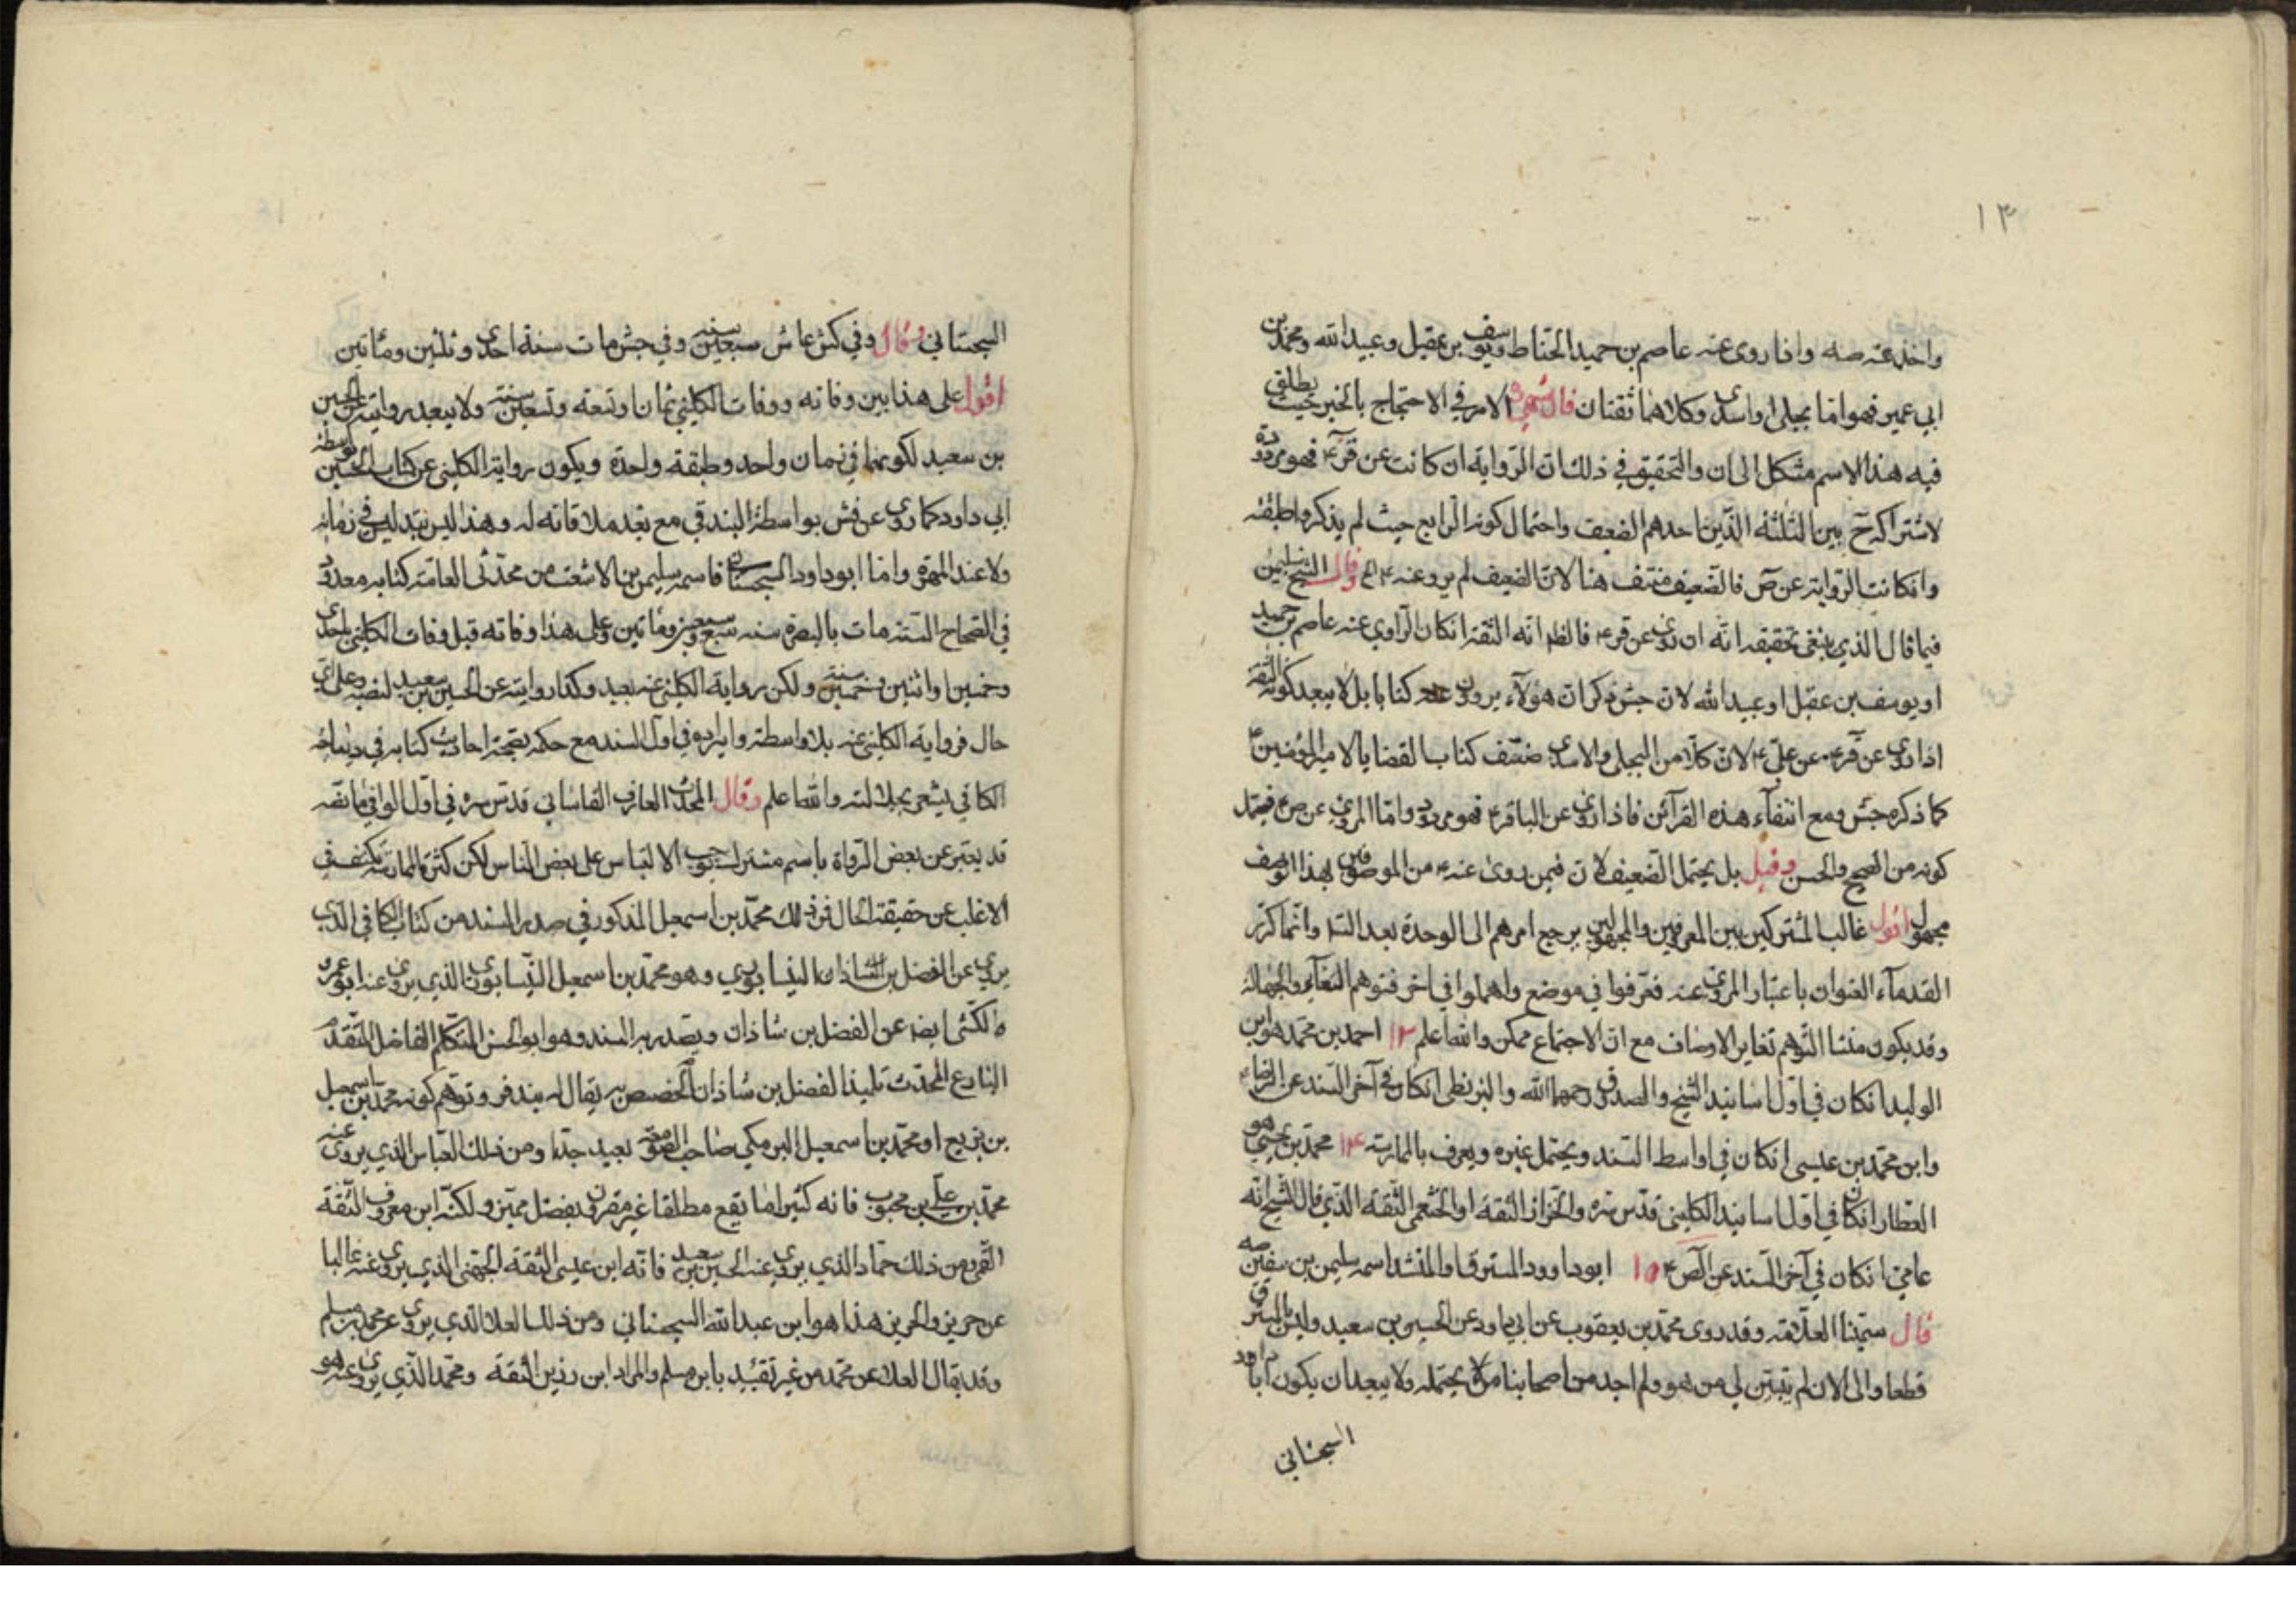 ١٣
واخذ عنه صه واذا روى عنه عاصم بن حميد الحناط ويوسف بن عقيل وعبيد الله ومحمد بن
ابي عمير فهو اما بجلي او اسدي وكلاهما ثقتان قال الامر في الاحتجاج بالخبر حيث يطلق
فيه هذا الاسم مشكل الى ان والتحقيق في ذلك ان الرواية ان كانت عن قر ع فهو مردودة
لاشتراكه ح بين الثلثة الذين احدهم الضعيف واحتمال كونه الرابع حيث لم يذكروا طبقته
وانكانت الرواية عن ص فالضعيف منتف هنا لان الضعيف لم يرو عنه ع وقال الشيخ سليمن
فيما قال الذي ينبغي تحقيقه انه ان روى عن قر ع فالظ انه الثقة انكان الراوي عنه عاصم بن حميد
او يوسف بن عقيل او عبيد الله لان جش ذكر ان هؤلاء يروون عنه كتابا بل لا يبعد كونه الثقة
اذا روى عن قر ع عن علي ع لان كلا من البجلي والاسدي صنف كتاب القضايا لامير المؤمنين ع
كما ذكره جش ومع انتفاء هذه القرآئن فاذا روى عن الباقر ع فهو مردود واما المروي عن ص ع فيحتمل
كونه من الصحيح والحسن وقيل بل يحتمل الضعيف لان فيمن روى عنه ع من الموصوفين بهذا الوصف
مجهول اقول غالب المشتركين بين المعروفين والمجهولين يرجع امرهم الى الوحدة بعد وانما كرر
القدمآء العنوان باعتبار المروي عنه فعرفوا في موضع واهملوا في اخر فتوهم التغآير والجهالة
وقد يكون منشا التوهم تغاير الاوصاف مع ان الاجتماع ممكن والله اعلم ١٣ احمد بن محمد هو ابن
الوليد انكان في اول اسانيد الشيخ والصدوق رحمهما الله والبزنطي انكان في آخر السند عن الرضاء
وابن محمد بن عيسى انكان في اواسط السند ويحتمل غيره ويعرف بالممارسة ١٤ محمد بن يحيى هو
العطار انكان في اول اسانيد الكليني قدس سره والخزاز الثقة او الخثعمي الثقة الذي قال الشيخ انه
عامي انكان في آخر السند عن الص ع ١٥ ابو داوود المسترق او المنشد اسمه سليمن بن سفين صه
قال سمينا العلامة وقد روى محمد بن يعقوب عن ابي داود عن الحسين بن سعيد وليس بالمسترق
قطعا والى الان لم يتبين لي من هو ولم اجد من اصحابنا من يحتمله ولا يبعد ان يكون ابا داود
السجستاني
السجستاني وقال وفي كش عاش سبعين سنة وفي جش مات سنة احدى وثلثين ومأتين
اقول على هذا بين وفاته ووفات الكليني ثمان وتسعة وتسعين سنة ولا يبعد روايته عن الحسين
بن سعيد لكونهما في زمان واحد وطبقة واحدة ويكون رواية الكليني عن كتاب الحسين بواسطة
ابي داود كما روى عن فش بواسطة البندقي مع بعد ملاقاته له وهذا ليس بتدليس في زمانه
ولا عند المهرة واما ابو داود السجستاني فاسمه سليمن بن الاشعث من محدثي العامة كتابه معدود
في الصحاح الستة مات بالبصرة سنة سبع وسبعين ومأتين وعلى هذا وفاته قبل وفات الكليني باحدى
وخمسين او اثنين وخمسين سنة ولكن رواية الكليني عنه بعيد وكذا روايته عن الحسين بن سعيد لنصبه وعلى اي
حال فرواية الكليني عنه بلا واسطة وايراده في اول السند مع حكمه بصحة احاديث كتابه في ديباجة
الكافي يشعر بجلالته والله اعلم وقال المحدث العارف القاساني قدس سره في اول الوافي ما نصه
قد يعبر عن بعض الرواة باسم مشترك يوجب الالتباس على بعض الناس لكن كثرة الممارسة يكشف في
الاغلب عن حقيقة الحال فمن ذلك محمد بن اسمعيل المذكور في صدر السند من كتاب الكافي الذي
يروي عن الفضل بن شاذان النيسابوري وهو محمد بن اسمعيل النيسابوري الذي يروي عنه ابو عمرو
الكشي ايضا عن الفضل بن شاذان ويصدر به السند وهو ابو الحسن المتكلم الفاضل المتقدم
البارع المحدث تلميذ الفضل بن شاذان الخصيص به يقال له بندفر وتوهم كونه محمد بن اسمعيل
بن بزيع او محمد بن اسمعيل البرمكي صاحب الصومعة بعيد جدا ومن ذلك العباس الذي يروى عنه
محمد بن علي بن محبوب فانه كثيرا ما يقع مطلقا غير مقرون بفصل مميز ولكنه ابن معروف الثقة
القمي ومن ذلك حماد الذي يروي عنه الحسين بن سعيد فانه ابن عيسى الثقة الجهني الذي يروي عنه غالبا
عن حريز والحريز هذا هو ابن عبد الله السجستاني ومن ذلك العلا الذي يروي عن محمد بن مسلم
وقد يقال العلا عن محمد من غير تقييد بابن مسلم والمراد ابن رزين الثقة ومحمد الذي يروي عنه هو